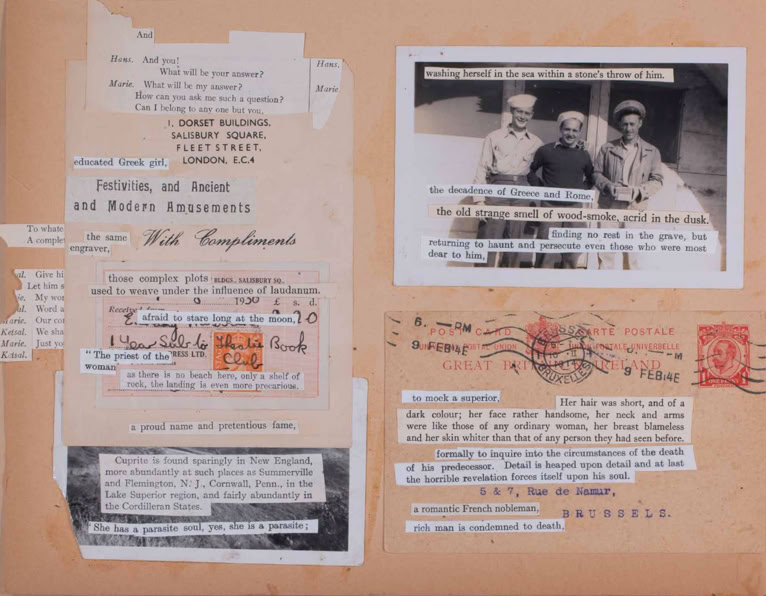 And
Hans. And you!
What will be your answer?
Marie. What will be my answer?
How can you ask me such a question?
Can I belong to any one but you,
Hans.
Marie.
1, DORSET BUILDINGS,
SALISBURY SQUARE,
FLEET STREET,
LONDON, E.C.4
educated Greek girl,
Festivities, and Ancient
and Modern Amusements
To whate
A comple
the same
engraver,
With Compliments
Give hi
Let him s
My wor
Word a
Marie. Our co
Ketsal. We sha
Marie. Just yo
Ketsal.
those complex plots
BLDGS., SALISBURY SQ.,
used to weave under the influence of laudanum.
1930 £ s. d.
Receive
afraid to stare long at the moon,
1 Year Sub to
Book
Club
RESS LTD.
"The priest of the
woman
as there is no beach here, only a shelf of
rock, the landing is even more precarious.
a proud name and pretentious fame,
Cuprite is found sparingly in New England,
more abundantly at such places at Summerville
and Flemington, N. J., Cornwall, Penn., in the
Lake Superior region, and fairly abundantly in
the Cordilleran States.
She has a parasite soul, yes, she is a parasite;
washing herself in the sea within a stone's throw of him.
the decadence of Greece and Rome,
the old strange smell of wood-smoke, acrid in the dusk.
finding no rest in the grave, but
returning to haunt and persecute even those who were most
dear to him,
6. — PM
9 FEB 14E
POST CARD
CARTE POSTALE
POSTAL UNION
POSTALE UNIVERSELLE
GREAT BRI
IRELAND
BRUXELLES
M
9 FEB 14E
to mock a superior,
Her hair was short, and of a
dark colour; her face rather handsome, her neck and arms
were like those of any ordinary woman, her breast blameless
and her skin whiter than that of any person they had seen before.
formally to inquire into the circumstances of the death
of his predecessor. Detail is heaped upon detail and at last
the horrible revelation forces itself upon his soul.
5 & 7, Rue de Namur,
BRUSSELS.
a romantic French nobleman,
rich man is condemned to death,